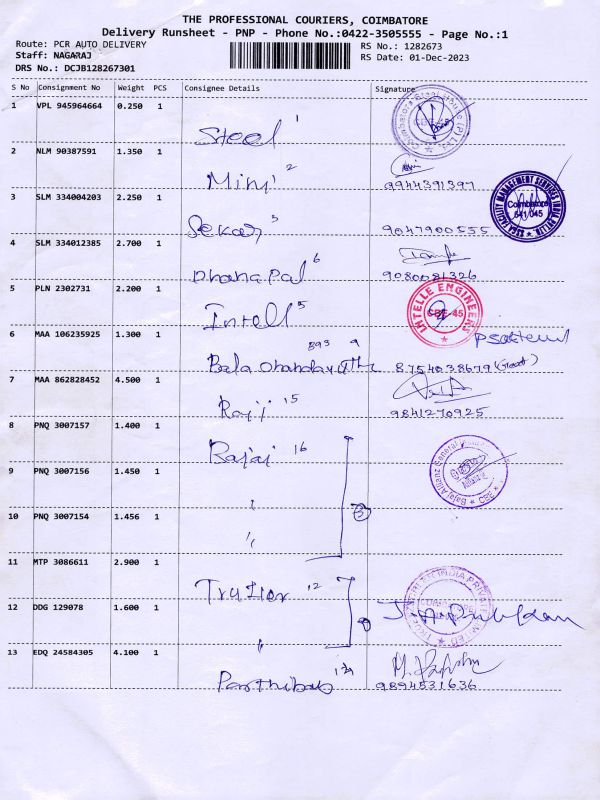 THE PROFESSIONAL COURIERS, COIMBATORE
Delivery Runsheet - PNP - Phone No.:0422-3505555 - Page No.:1
Route: PCR AUTO DELIVERY RS No.: 1282673
Staff: NAGARAJ RS Date: 01-Dec-2023
DRS No.: DCJB128267301
S No Consignment No Weight PCS Consignee Details Signature
1 VPL 945964664 0.250 1 Steel 1
2 NLM 90387591 1.350 1 Mini 2 9944391397
3 SLM 334004203 2.250 1 Sekar 3 9047900555
Coimbatore 641 045
4 SLM 334012385 2.700 1 Dhanapal 6 9080081326
5 PLN 2302731 2.200 1 Intell 5
INTELLE ENGINEERS CBE-45
6 MAA 106235925 1.300 1 893 9 8754038679
7 MAA 862828452 4.500 1 Raji 15 9841270925
8 PNQ 3007157 1.400 1 Bajaj 16
9 PNQ 3007156 1.450 1 "
10 PNQ 3007154 1.456 1 "
3
11 MTP 3086611 2.900 1 12
12 DDG 129078 1.600 1 "
13 EDQ 24584305 4.100 1 9894531636